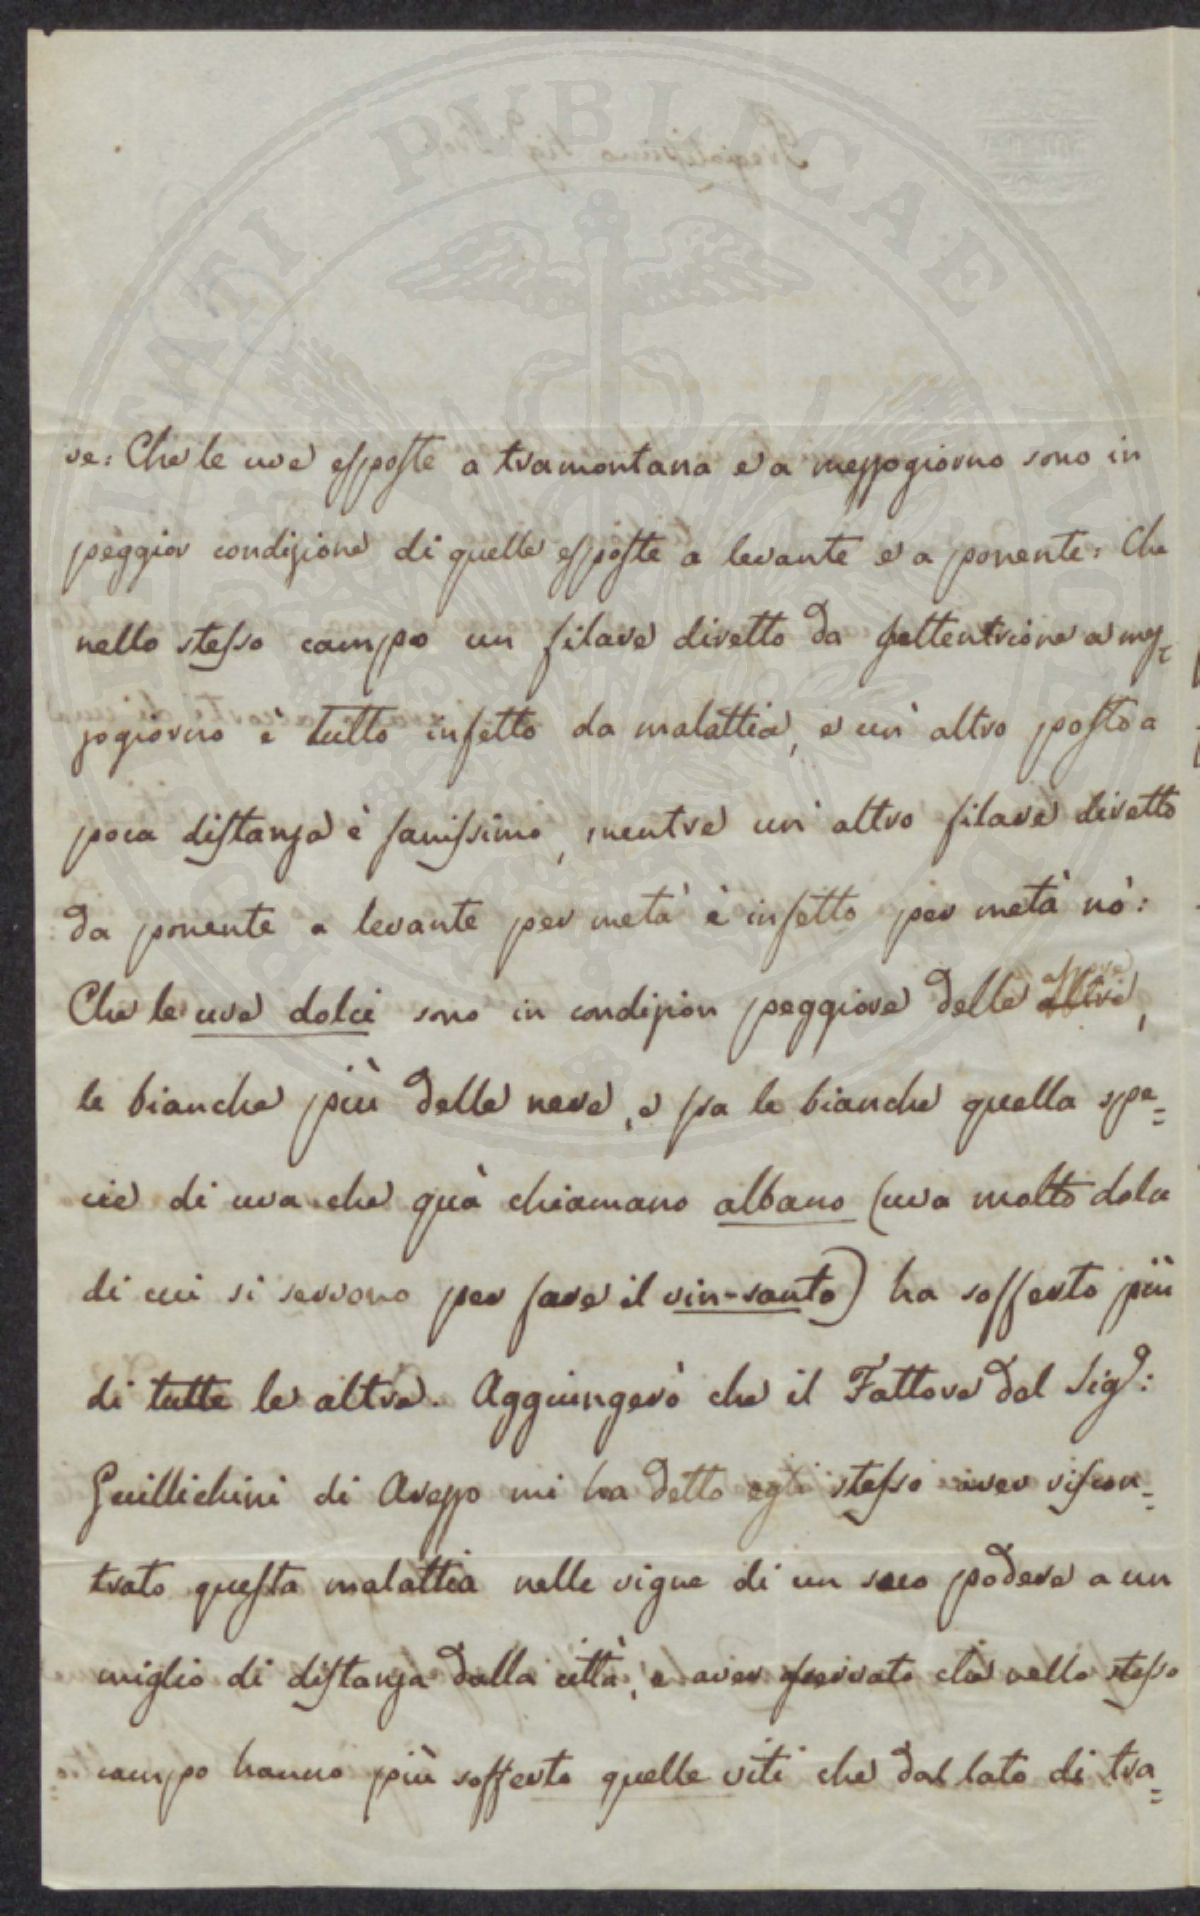 re: Che le uve esposte a tramontana e a mezzogiorno sono in
peggior condizione di quelle esposte a levante e a ponente: Che
nello stesso campo un filare diretto da settentrione a mez=
zogiorno è tutto infetto da malattia, e un' altro posto a
poca distanza è sanissimo, mentre un' altro filare diretto
da ponente a levante per metà è infetto per metà nò:
Che le uve dolci sono in condizion peggiore delle altre aspre,
le bianche più delle nere, e fra le bianche quella spe=
cie di uva che quà chiamano albano (uva molto dolce
di cui si servono per fare il vin-santo) ha sofferto più
di tutte le altre. Aggiungerò che il Fattore del Sigr:
Guillichini di Arezzo mi ha detto egli stesso aver riscon=
trato questa malattia nelle vigne di un suo podere a un
miglio di distanza dalla città, e aver osservato che nello stesso
campo hanno più sofferto quelle viti che dal lato di tra=
PUBLICAE